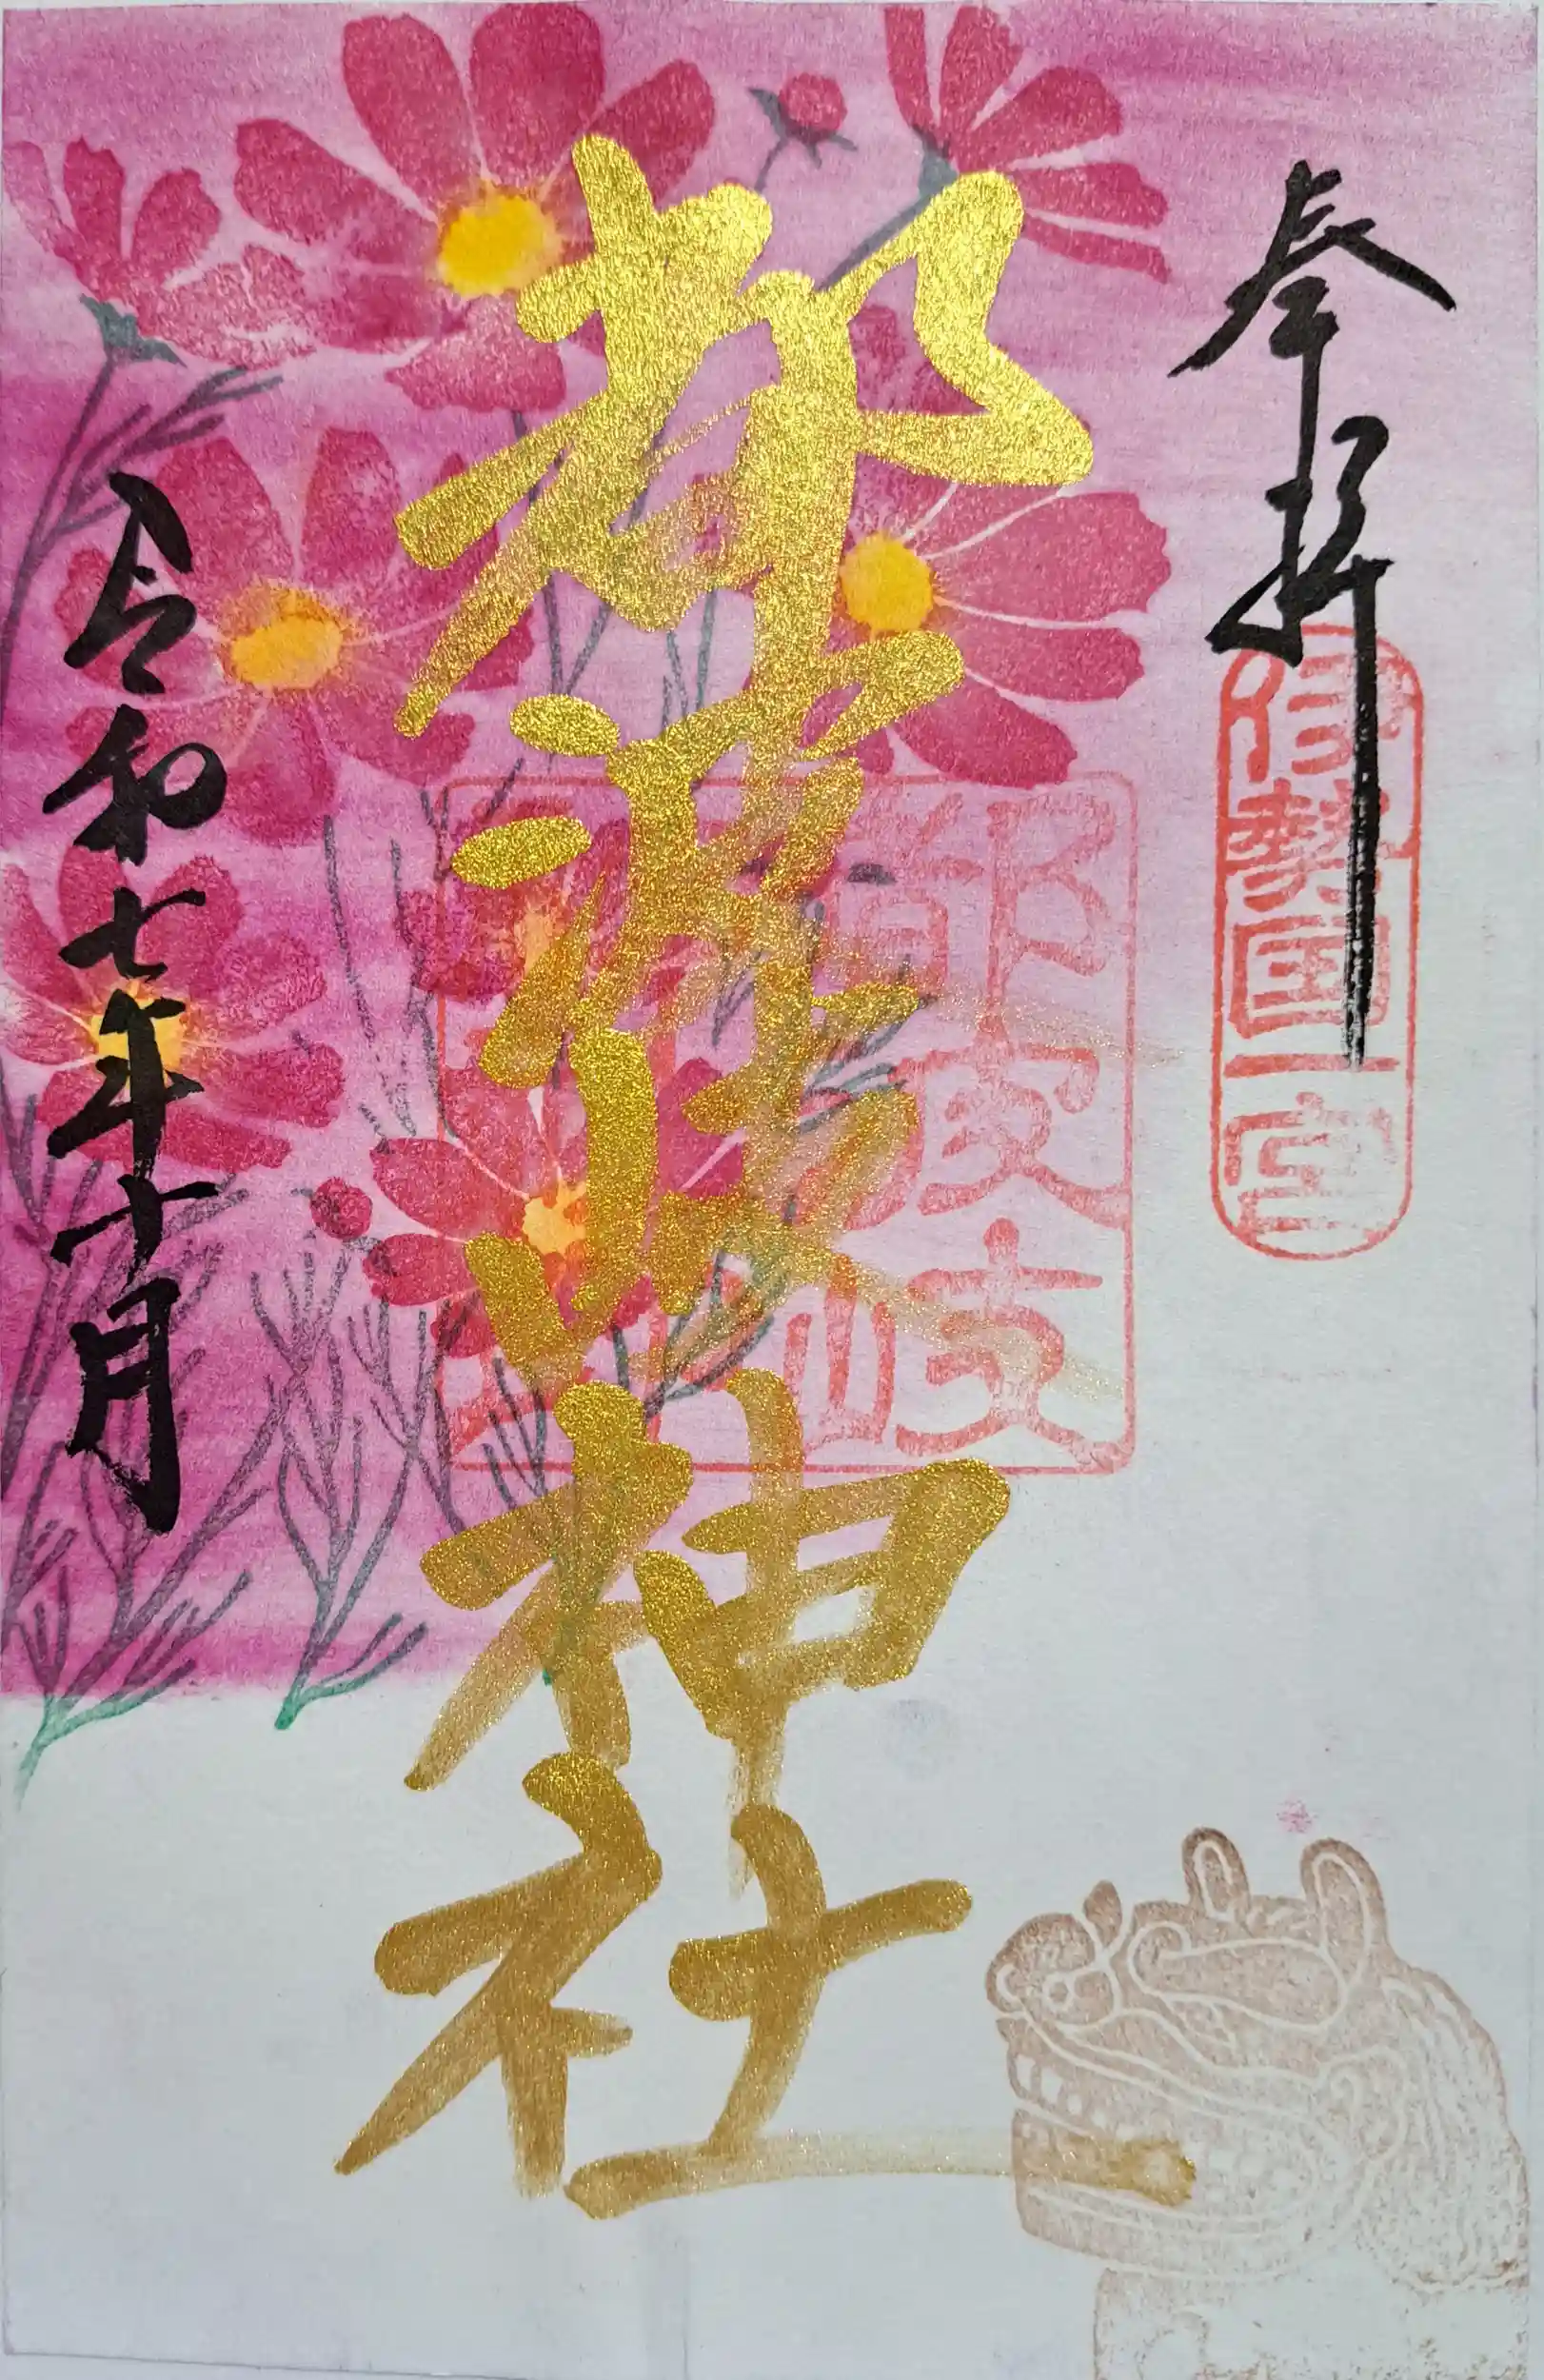 奉拝
伊勢国一宮
都波岐神社
都波岐
令和七年十月